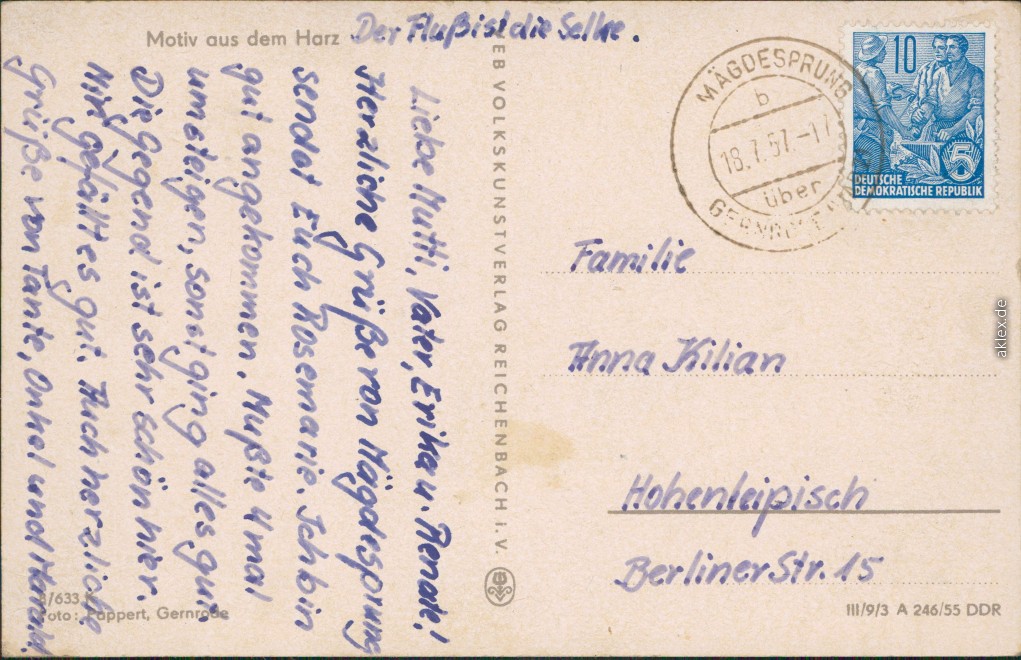 Motiv aus dem Harz
Der Fluß ist die Selke.
Liebe Mutti, Vater, Erika u. Renate!
Herzliche Grüße von Mägdesprung
sendet Euch Rosemarie. Ich bin
gut angekommen. Mußte 4 mal
umsteigen, sonst ging alles gut.
Die Gegend ist sehr schön hier.
Mir gefällt es gut. Auch herzliche
Grüße von Tante, Onkel und
B/633
Foto: Pappert, Gernrode
VEB VOLKSKUNSTVERLAG REICHENBACH i. V.
MÄGDESPRUNG
b
18.7.57.-17
über
GERNRODE
10
5
DEUTSCHE
DEMOKRATISCHE REPUBLIK
Familie
Anna Kilian
Hohenleipisch
Berliner Str. 15
III/9/3 A 246/55 DDR
aklex.de